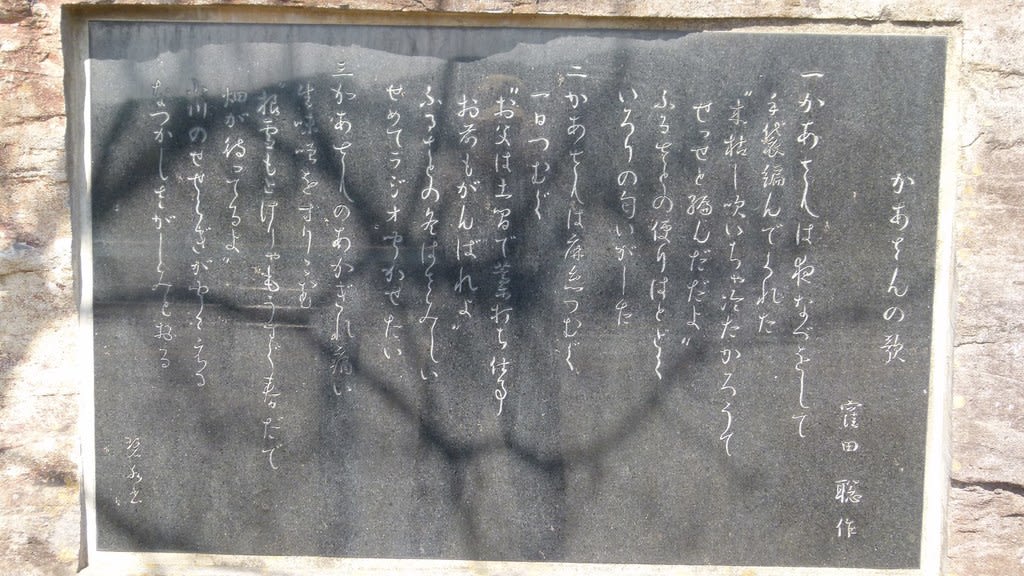 かあさんの歌
窪田 聡 作
一 かあさんは夜なべをして
手袋編んでくれた
"木枯し吹いちゃ冷たかろうて
せっせと編んだだよ"
ふるさとの便りはとどく
いろりの匂いがした
二 かあさんは麻糸つむぐ
一日つむぐ
"お父は土間で藁打ち仕事
お前もがんばれよ"
ふるさとの冬はさみしい
せめてラジオ聞かせたい
三 かあさんのあかぎれ痛い
生味噌をすりこむ
"根雪もとけりゃもうすぐ春だで
畑が待ってるよ"
小川のせせらぎが聞こえる
なつかしさがしみとおる